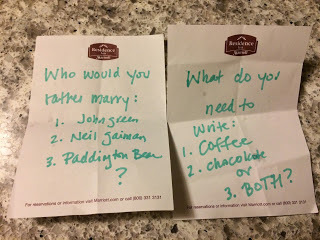 Residence
Marriott
Who would you
rather marry:
1. John green
2. Neil gaiman
3. Paddington Bear
?
For reservations or information visit Marriott.com or call (800) 331 3131
Residence
Marriott
What do you
need to
Write:
1. Coffee
2. chocolate
or
3. BOTH?
For reservations or information visit Marriott.com or call (800) 331 3131